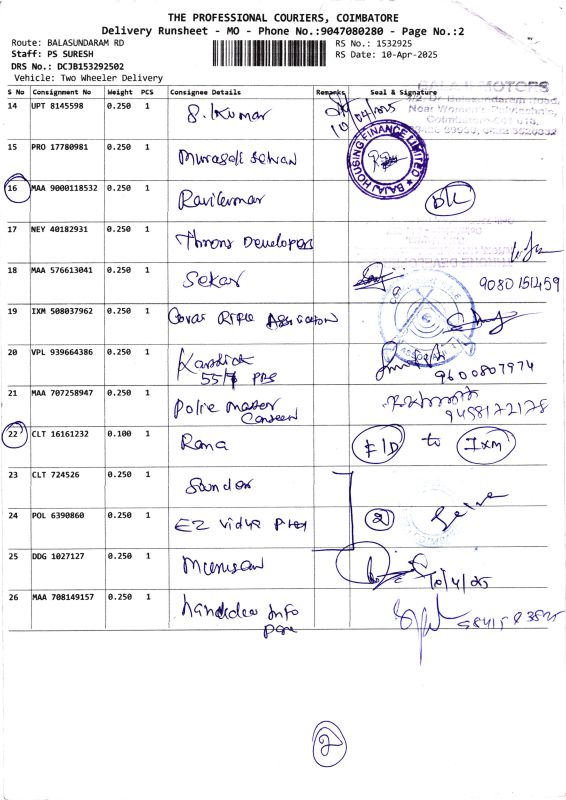 THE PROFESSIONAL COURIERS, COIMBATORE
Delivery Runsheet - MO - Phone No.:9047080280 - Page No.:2
Route: BALASUNDARAM RD
Staff: PS SURESH
DRS No.: DCJB153292502
Vehicle: Two Wheeler Delivery
RS No.: 1532925
RS Date: 10-Apr-2025
S No Consignment No Weight PCS Consignee Details Remarks Seal & Signature
14 UPT 8145598 0.250 1 S. Kumar 10/04/2025
BALAJI MOTORS
Near Women's Polytechnic,
BAJAJ HOUSING FINANCE LIMITED
15 PRO 17780981 0.250 1 Murasoli Selvan
16 MAA 9000118532 0.250 1 Ravikumar DK
17 NEY 40182931 0.250 1 Throns Developers
18 MAA 576613041 0.250 1 Sekar 9080151459
19 IXM 508037962 0.250 1 Covai Rifle Assication
20 VPL 939664386 0.250 1 Karthick
55/7 PRS
9600807974
21 MAA 707258947 0.250 1 Police Master
Canteen
9458172178
22 CLT 16161232 0.100 1 Rana F/D to IXM
23 CLT 724526 0.250 1 Sander
24 POL 6390860 0.250 1 EZ Vidya 2
25 DDG 1027127 0.250 1 Murusan 10/4/25
26 MAA 708149157 0.250 1 Info
2